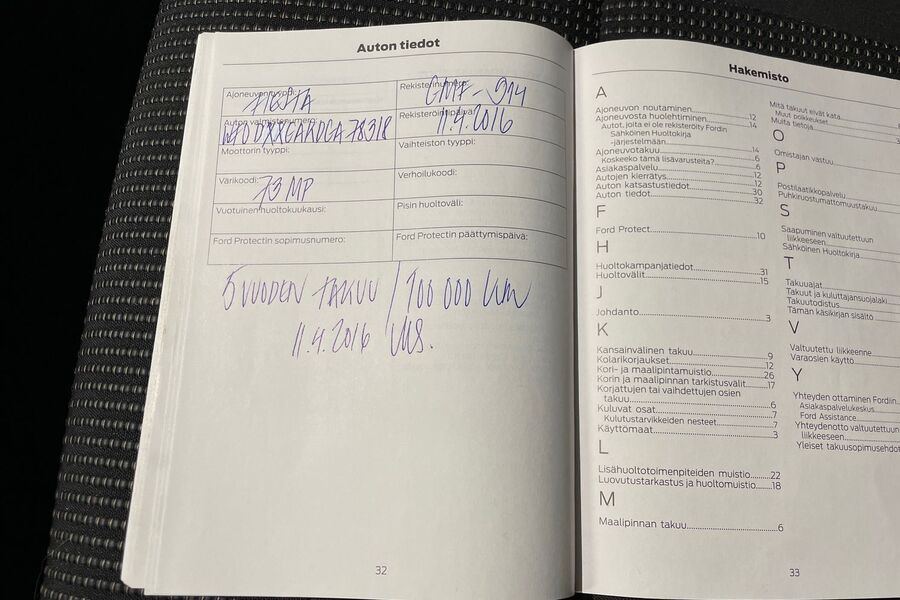 Auton tiedot
Ajoneuvon tyyppi:
FIESTA
Rekisterinumero:
GMF-914
Auton valmistenumero:
Rekisteröintipäivä:
11.4.2016
Moottorin tyyppi:
Vaihteiston tyyppi:
Värikoodi:
73 MP
Verhoilukoodi:
Vuotuinen huoltokuukausi:
Pisin huoltoväli:
Ford Protectin sopimusnumero:
Ford Protectin päättymispäivä:
5 VUODEN TAKUU / 100 000 km
11.4.2016
32
Hakemisto
A
Ajoneuvon noutaminen
Ajoneuvosta huolehtiminen 12
Autot, joita ei ole rekisteröity Fordin 14
Sähköinen Huoltokirja
-järjestelmään
Ajoneuvotakuu 14
Koskeeko tämä lisävarusteita? 6
Asiakaspalvelu 6
Autojen kierrätys 12
Auton katsastustiedot 12
Auton tiedot 30
32
F
Ford Protect 10
H
Huoltokampanjatiedot 31
Huoltovälit 15
J
Johdanto 3
K
Kansainvälinen takuu 9
Kolarikorjaukset 12
Kori- ja maalipintamuistio 26
Korin ja maalipinnan tarkistusvälit 17
Korjattujen tai vaihdettujen osien
takuu 6
Kuluvat osat 7
Kulutustarvikkeiden nesteet 7
Käyttömaat 3
L
Lisähuoltotoimenpiteiden muistio 22
Luovutustarkastus ja huoltomuistio 18
M
Maalipinnan takuu 6
Mitä takuut eivät kata
Muut poikkeukset
Muita tietoja
O
Omistajan vastuu
P
Postilaatikkopalvelu
Puhkiruostumattomuustakuu
S
Saapuminen valtuutettuun
liikkeeseen
Sähköinen Huoltokirja
T
Takuuajat
Takuut ja kuluttajansuojalaki
Takuutodistus
Tämän käsikirjan sisältö
V
Valtuutettu liikkenne
Varaosien käyttö
Y
Yhteyden ottaminen Fordiin
Asiakaspalvelukeskus
Ford Assistance
Yhteydenotto valtuutettuun
liikkeeseen
Yleiset takuusopimusehdot
33